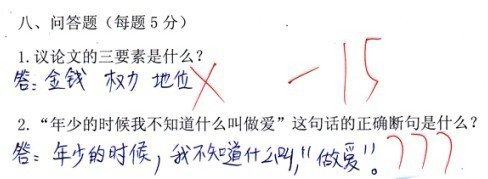 八、问答题（每题5分）
1.议论文的三要素是什么？
答：金钱 权力 地位 ✗ -15
2.“年少的时候我不知道什么叫做爱”这句话的正确断句是什么？
答：年少的时候，我不知道什么叫，“做爱”。 ???